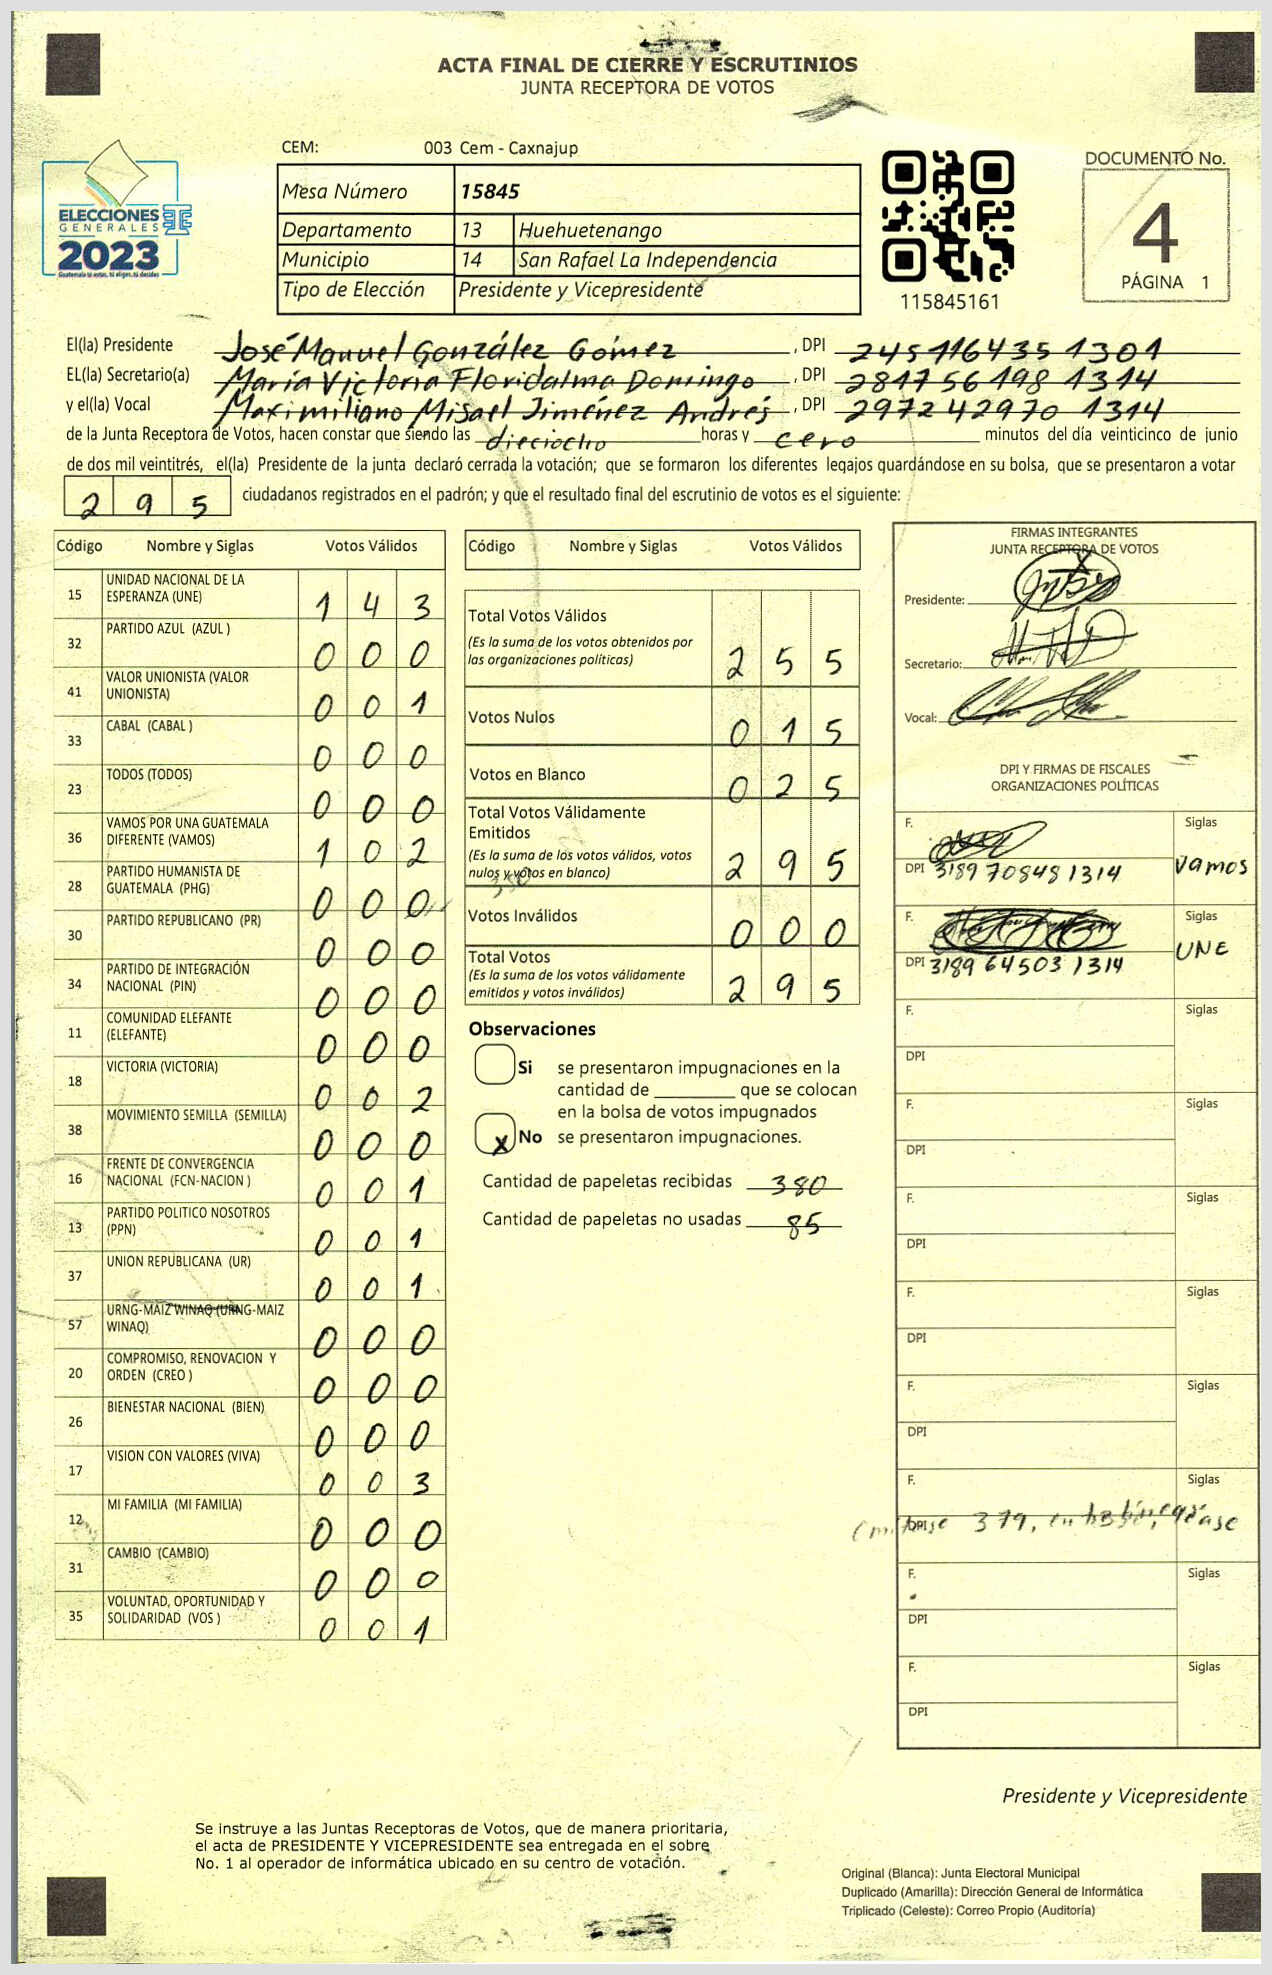 ACTA FINAL DE CIERRE Y ESCRUTINIOS
JUNTA RECEPTORA DE VOTOS
CEM: 003 Cem - Caxnajup
ELECCIONES
GENERALES
2023
Guatemala tú votas, tú eliges, tú decides
Mesa Número 15845
Departamento 13 Huehuetenango
Municipio 14 San Rafael La Independencia
Tipo de Elección Presidente y Vicepresidente
115845161
DOCUMENTO No.
4
PÁGINA 1
El(la) Presidente José Manuel González Gómez , DPI 245116435 1301
EL(la) Secretario(a) María Victoria Floridalma Domingo , DPI 281756198 1314
y el(la) Vocal Maximiliano Misael Jiménez Andrés , DPI 297242970 1314
de la Junta Receptora de Votos, hacen constar que siendo las dieciocho horas y cero minutos del día veinticinco de junio
de dos mil veintitrés, el(la) Presidente de la junta declaró cerrada la votación; que se formaron los diferentes legajos guardándose en su bolsa, que se presentaron a votar
295 ciudadanos registrados en el padrón; y que el resultado final del escrutinio de votos es el siguiente:
Código Nombre y Siglas Votos Válidos
15 UNIDAD NACIONAL DE LA ESPERANZA (UNE) 1 4 3
32 PARTIDO AZUL (AZUL ) 0 0 0
41 VALOR UNIONISTA (VALOR UNIONISTA) 0 0 1
33 CABAL (CABAL ) 0 0 0
23 TODOS (TODOS) 0 0 0
36 VAMOS POR UNA GUATEMALA DIFERENTE (VAMOS) 1 0 2
28 PARTIDO HUMANISTA DE GUATEMALA (PHG) 0 0 0
30 PARTIDO REPUBLICANO (PR) 0 0 0
34 PARTIDO DE INTEGRACIÓN NACIONAL (PIN) 0 0 0
11 COMUNIDAD ELEFANTE (ELEFANTE) 0 0 0
18 VICTORIA (VICTORIA) 0 0 2
38 MOVIMIENTO SEMILLA (SEMILLA) 0 0 0
16 FRENTE DE CONVERGENCIA NACIONAL (FCN-NACION ) 0 0 1
13 PARTIDO POLITICO NOSOTROS (PPN) 0 0 1
37 UNION REPUBLICANA (UR) 0 0 1
57 URNG-MAIZ WINAQ (URNG-MAIZ WINAQ) 0 0 0
20 COMPROMISO, RENOVACION Y ORDEN (CREO ) 0 0 0
26 BIENESTAR NACIONAL (BIEN) 0 0 0
17 VISION CON VALORES (VIVA) 0 0 3
12 MI FAMILIA (MI FAMILIA) 0 0 0
31 CAMBIO (CAMBIO) 0 0 0
35 VOLUNTAD, OPORTUNIDAD Y SOLIDARIDAD (VOS ) 0 0 1
Código Nombre y Siglas Votos Válidos
Total Votos Válidos
(Es la suma de los votos obtenidos por
las organizaciones políticas) 2 5 5
Votos Nulos 0 1 5
Votos en Blanco 0 2 5
Total Votos Válidamente
Emitidos
(Es la suma de los votos válidos, votos
nulos y votos en blanco) 2 9 5
Votos Inválidos 0 0 0
Total Votos
(Es la suma de los votos válidamente
emitidos y votos inválidos) 2 9 5
Observaciones
Si se presentaron impugnaciones en la
cantidad de ________ que se colocan
en la bolsa de votos impugnados
X No se presentaron impugnaciones.
Cantidad de papeletas recibidas 380
Cantidad de papeletas no usadas 85
FIRMAS INTEGRANTES
JUNTA RECEPTORA DE VOTOS
Presidente:
Secretario:
Vocal:
DPI Y FIRMAS DE FISCALES
ORGANIZACIONES POLÍTICAS
F. Siglas
DPI 3189 70848 1314 Vamos
F. Siglas
DPI 3189 64503 1314 UNE
F. Siglas
DPI
F. Siglas
DPI
F. Siglas
DPI
F. Siglas
DPI
F. Siglas
DPI
F. Siglas
DPI 379,
F. Siglas
DPI
F. Siglas
DPI
Presidente y Vicepresidente
Se instruye a las Juntas Receptoras de Votos, que de manera prioritaria,
el acta de PRESIDENTE Y VICEPRESIDENTE sea entregada en el sobre
No. 1 al operador de informática ubicado en su centro de votación.
Original (Blanca): Junta Electoral Municipal
Duplicado (Amarilla): Dirección General de Informática
Triplicado (Celeste): Correo Propio (Auditoría)